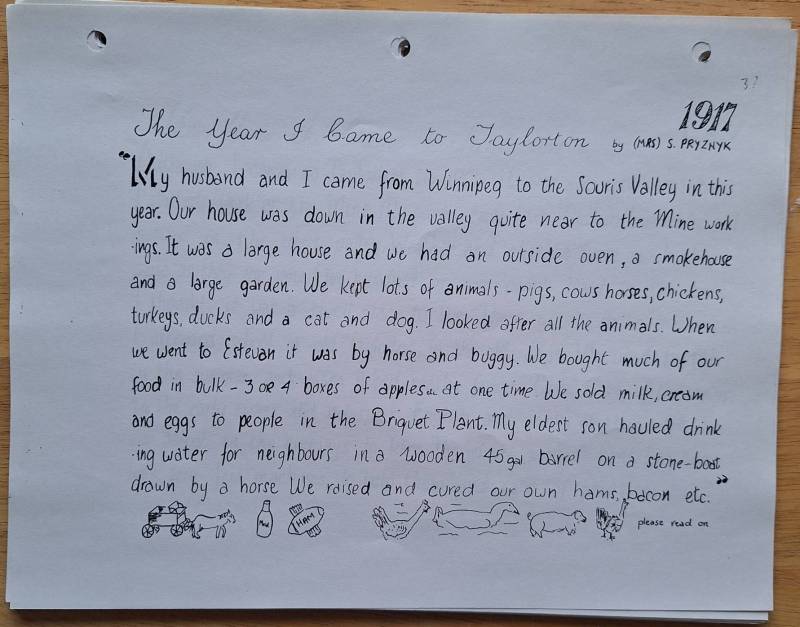 37
1917
The Year I Came to Taylorton by (MRS) S. PRYZNYK
"My husband and I came from Winnipeg to the Souris Valley in this
year. Our house was down in the valley quite near to the Mine work
-ings. It was a large house and we had an outside oven, a smokehouse
and a large garden. We kept lots of animals - pigs, cows horses, chickens,
turkeys, ducks and a cat and dog. I looked after all the animals. When
we went to Estevan it was by horse and buggy. We bought much of our
food in bulk - 3 or 4 boxes of apples at one time We sold milk, cream
and eggs to people in the Briquet Plant. My eldest son hauled drink
-ing water for neighbours in a wooden 45 gal barrel on a stone-boat
drawn by a horse We raised and cured our own hams, bacon etc."
Milk
HAM
please read on